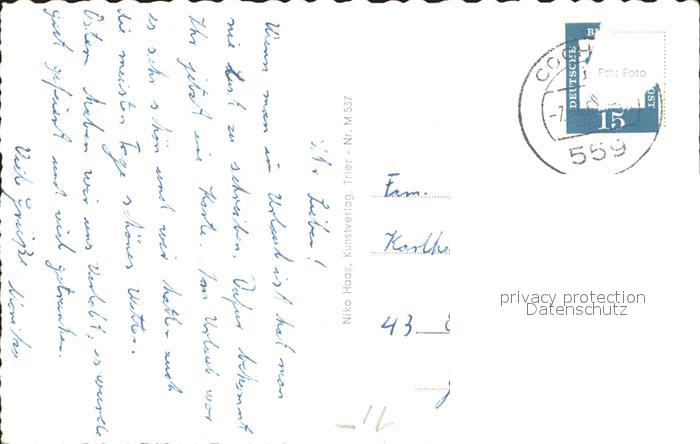 Ihr Lieben!
Wenn man in Urlaub ist hat man
nie Lust zu schreiben. Dafür bekommt
Ihr jetzt eine Karte. Im Urlaub war
es sehr schön und wir hatten auch
die meisten Tage schönes Wetter.
Ostern haben wir uns verlobt, es wurde
gut gefeiert und viel getrunken.
Viele Grüße
Niko Haas, Kunstverlag, Trier - Nr. M 537
Fam.
Karlhe
43
DEUTSCHE
B
OST
15
Echt Foto
COCH
559
privacy protection
Datenschutz